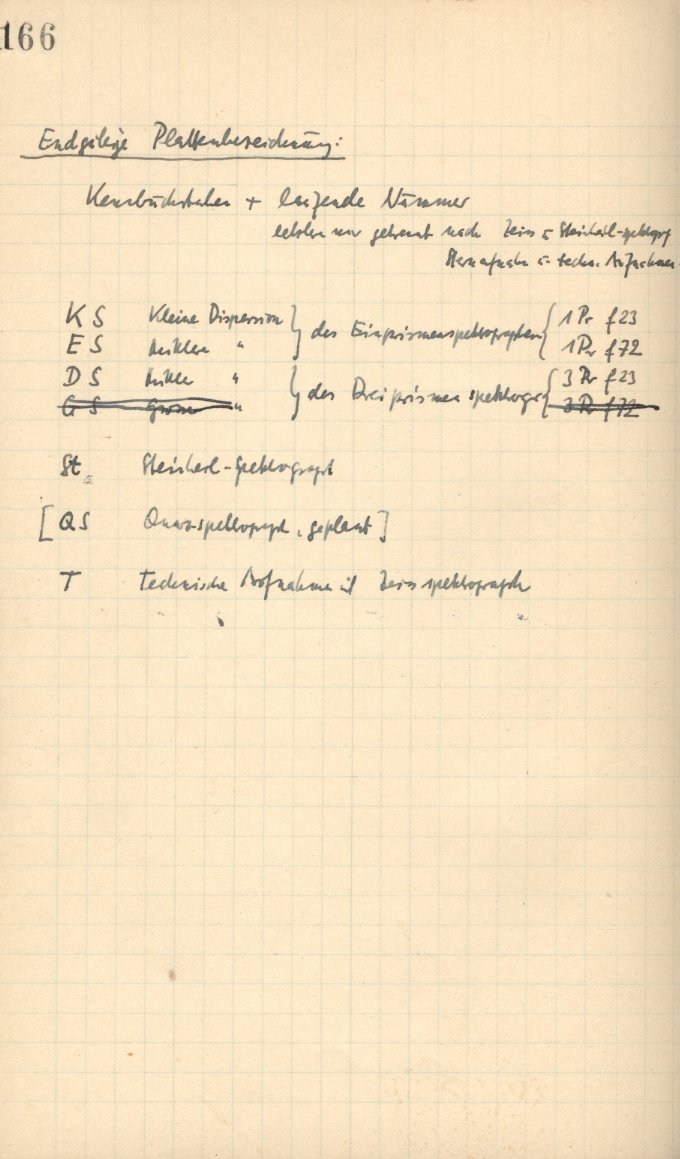 166
Endgültige Plattenbezeichnung:
Kennbuchstaben + laufende Nummer
letztere nur getrennt nach Zeiss u Steinheil-spektogr
Sternaufnahm u techn. Aufnahmen.
K S Kleine Dispersion } des Einprismenspektrographen { 1 Pr f 23
E S Mittlere " 1 Pr f 72
D S Mittle " } des Dreiprismenspektrogr { 3 Pr f 23
G S Grosse " 3 Pr f 72
St Steinheil-Spektrograph
[ QS Quarzspektrograph, geplant ]
T Technische Aufnahmen Zeissspektrograph